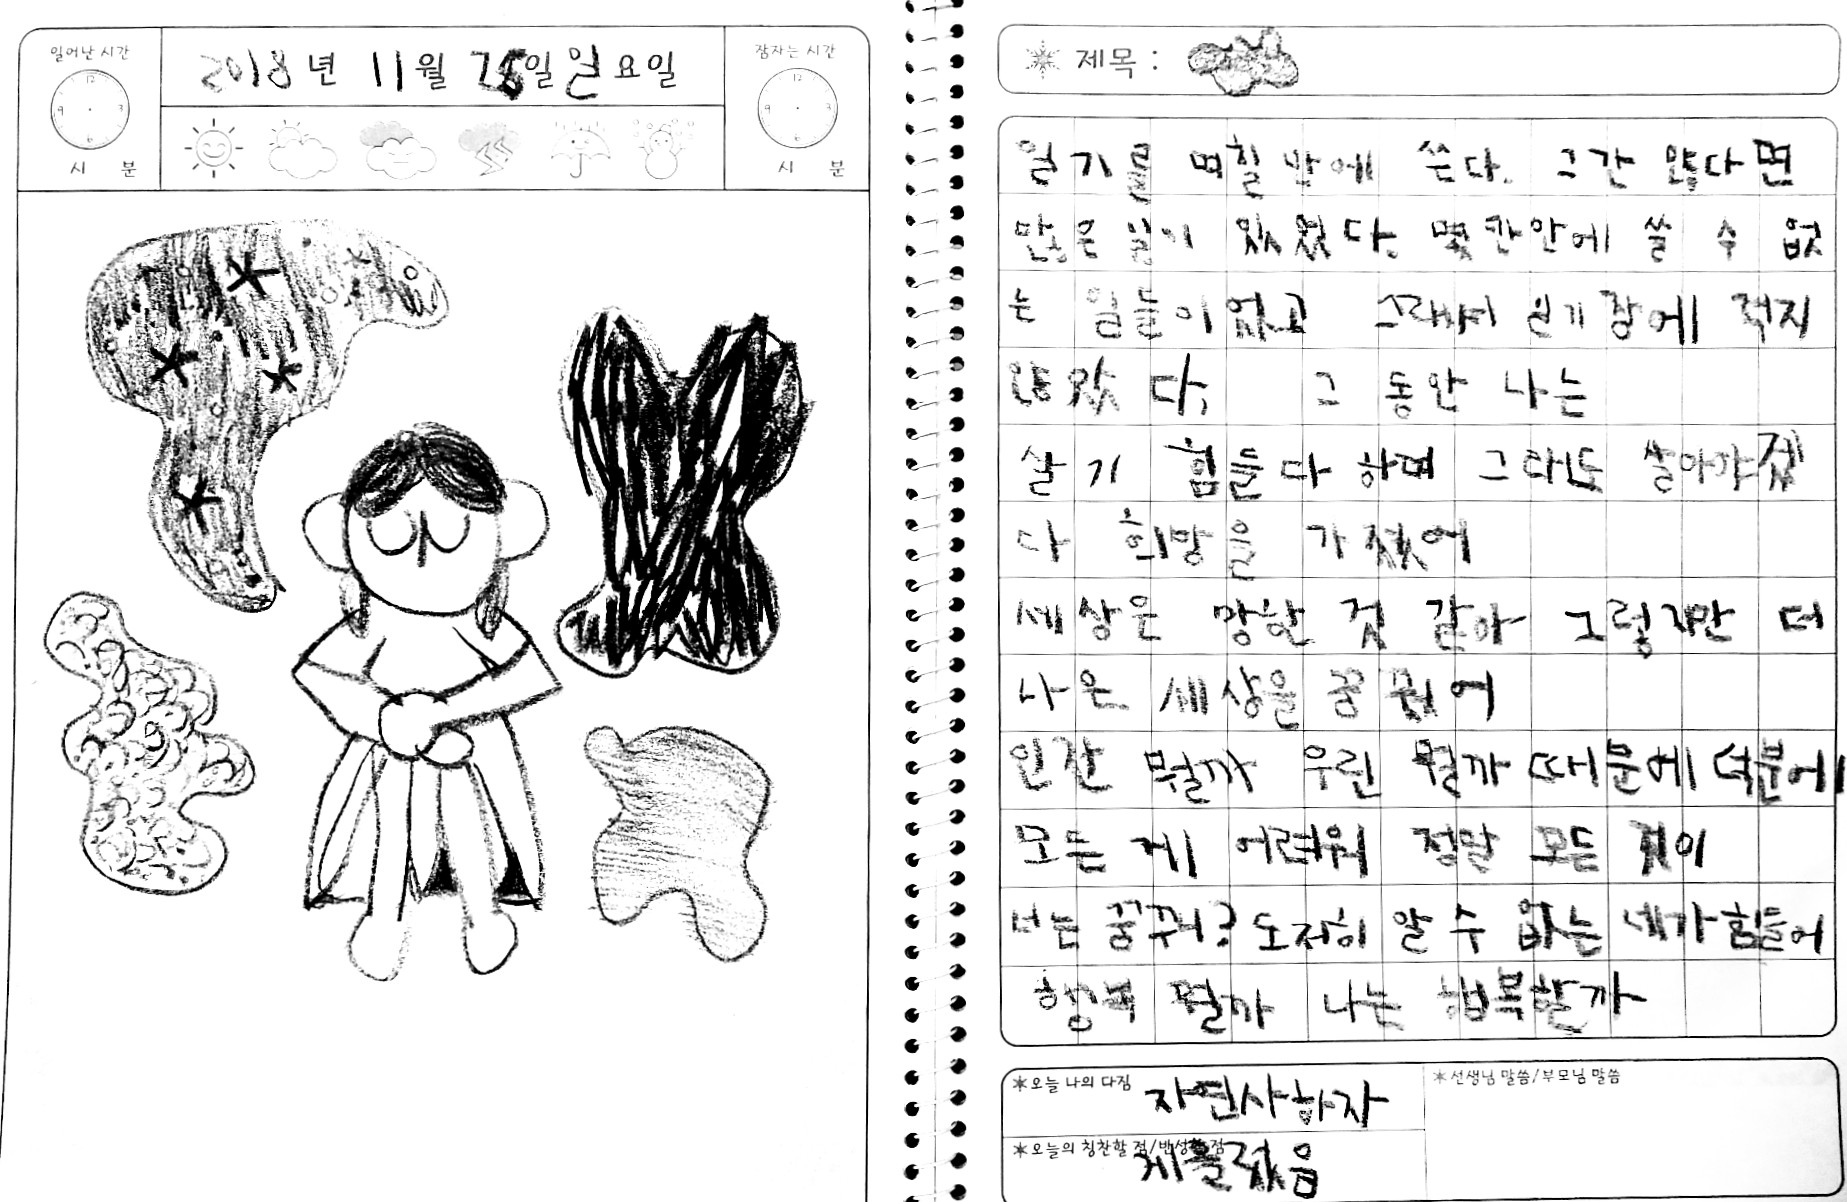 일어난 시간
2018년 11월 25일 일요일
잠자는 시간
12
3
6
9
12
3
6
9
시 분
시 분
제목 :
일기를 며칠 밖에 쓴다. 그간 많다면
많은 일이 있었다. 몇 칸 안에 쓸 수 없
는 일들이었고 그래서 일기장에 적지
않았다. 그동안 나는
살기 힘들다 하며 그래도 살아야겠
다 희망을 가졌어
세상은 망한 것 같아 그렇지만 더
나은 세상을 꿈꿨어
인간 뭘까 우린 뭘까 때문에 덕분에
모든 게 어려워 정말 모든 것이
너는 꿈꿔? 도저히 알 수 없는 네가 힘들어
행복 뭘까 나는 행복할까
*오늘 나의 다짐
자연사하자
*선생님 말씀/부모님 말씀
*오늘의 칭찬할 점/반성할 점
게을렀음